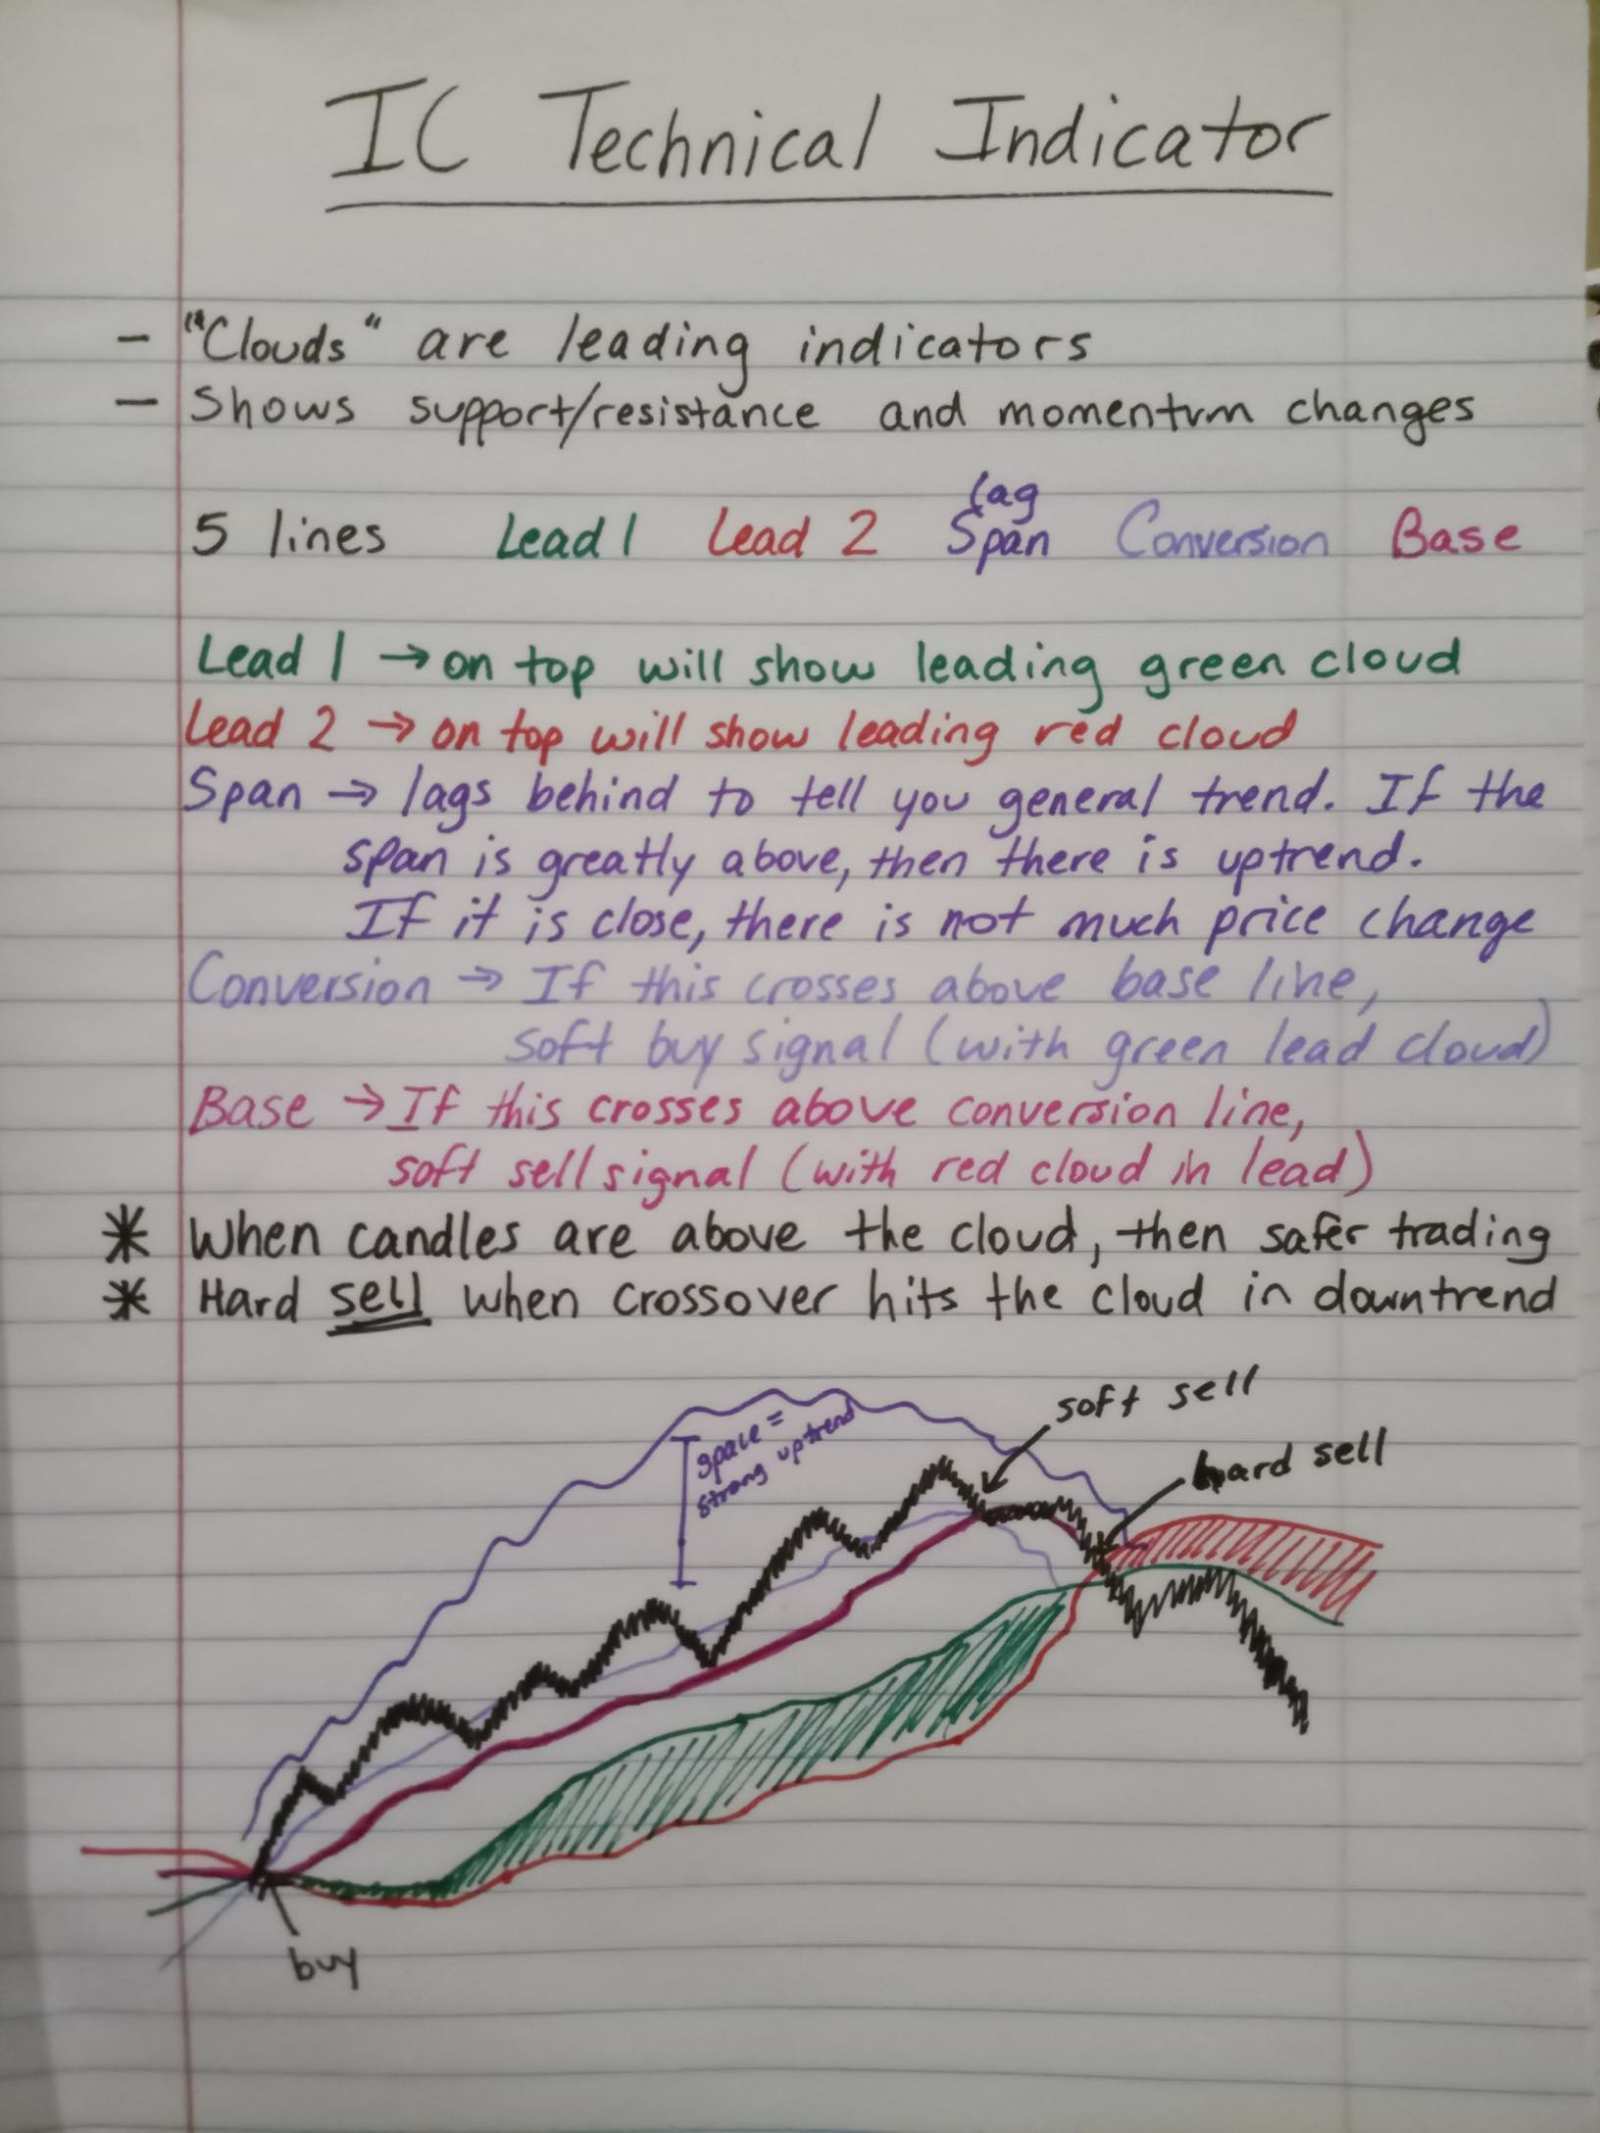 IC Technical Indicator
- "Clouds" are leading indicators
- Shows support/resistance and momentum changes
5 lines Lead 1 Lead 2 lag Span Conversion Base
Lead 1 → on top will show leading green cloud
Lead 2 → on top will show leading red cloud
Span → lags behind to tell you general trend. If the
span is greatly above, then there is uptrend.
If it is close, there is not much price change
Conversion → If this crosses above base line,
soft buy signal (with green lead cloud)
Base → If this crosses above conversion line,
soft sell signal (with red cloud in lead)
* When candles are above the cloud, then safer trading
* Hard sell when crossover hits the cloud in downtrend
soft sell
space =
strong uptrend
hard sell
buy